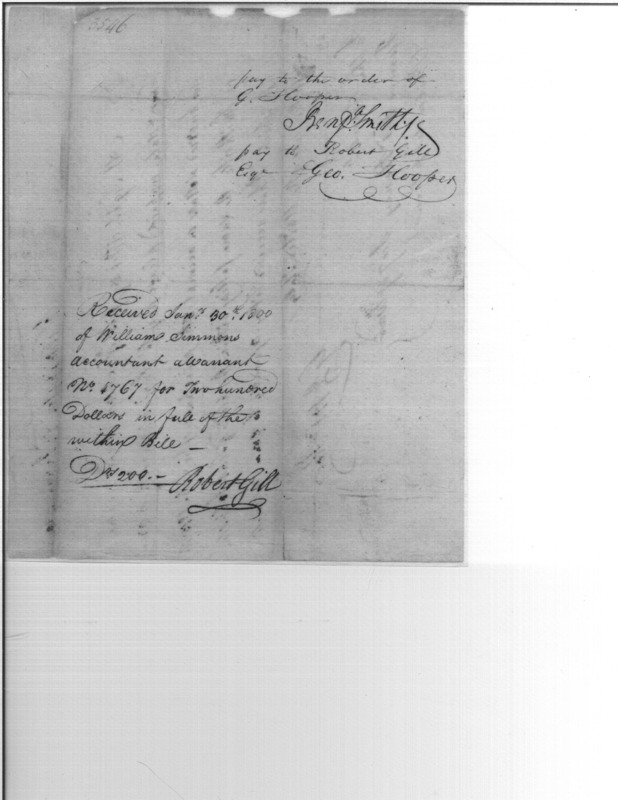 3546
pay to the order of
G. Hooper
Benj.ⁿ Smith
pay to Robert Gill
Esqr Geo. Hooper
Received Jany 30th 1800
of William Simmons
Accountant a Warrant
No. 5767 for Two hundred
Dollars in full of the
within Bill —
Drs 200.— Robert Gill